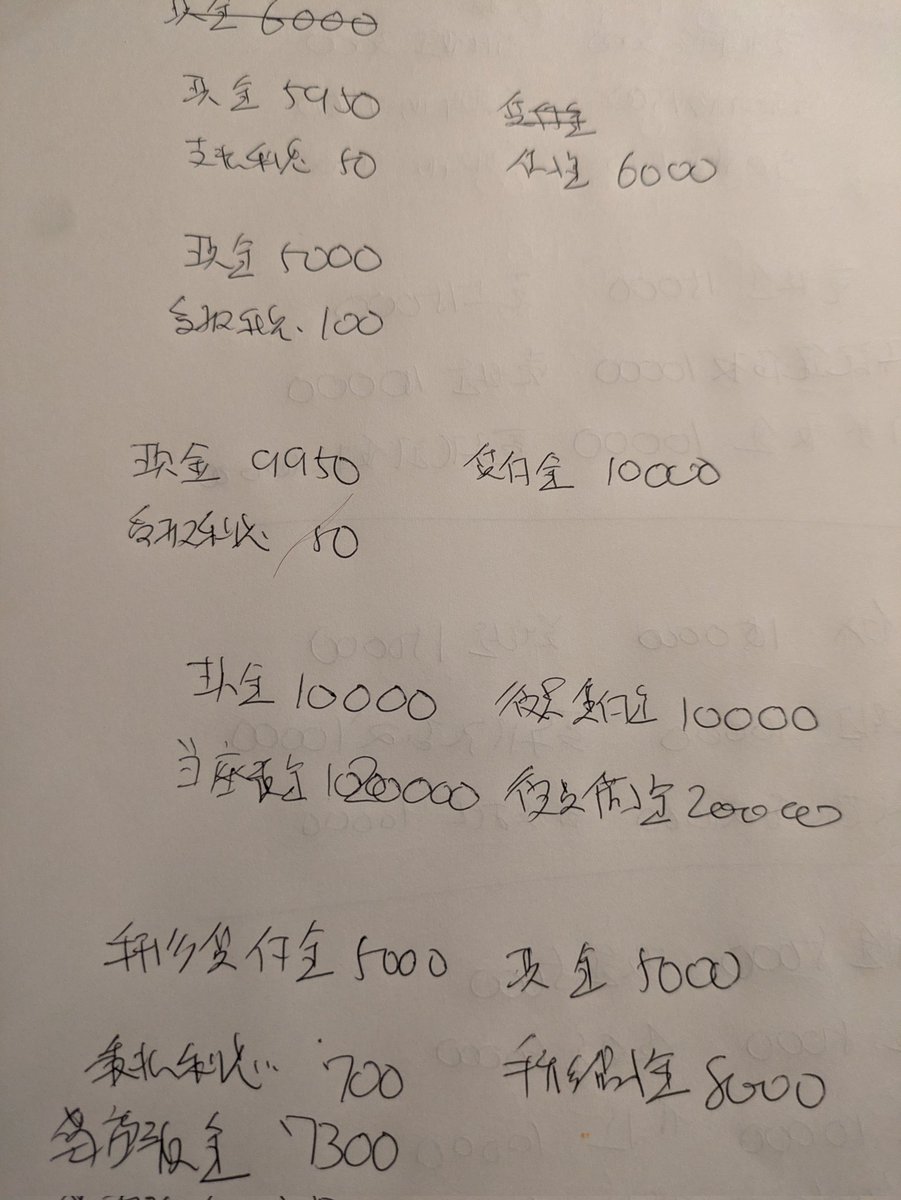 現金 6000
現金 5950 貸付金
支払利息 50 借入金 6000
現金 5000
受取利息 100
現金 9950 貸付金 10000
受取利息 50
現金 10000 役員貸付金 10000
当座預金 200000 役員借入金 200000
手形貸付金 5000 現金 5000
支払利息 700 手形借入金 8000
当座預金 7300